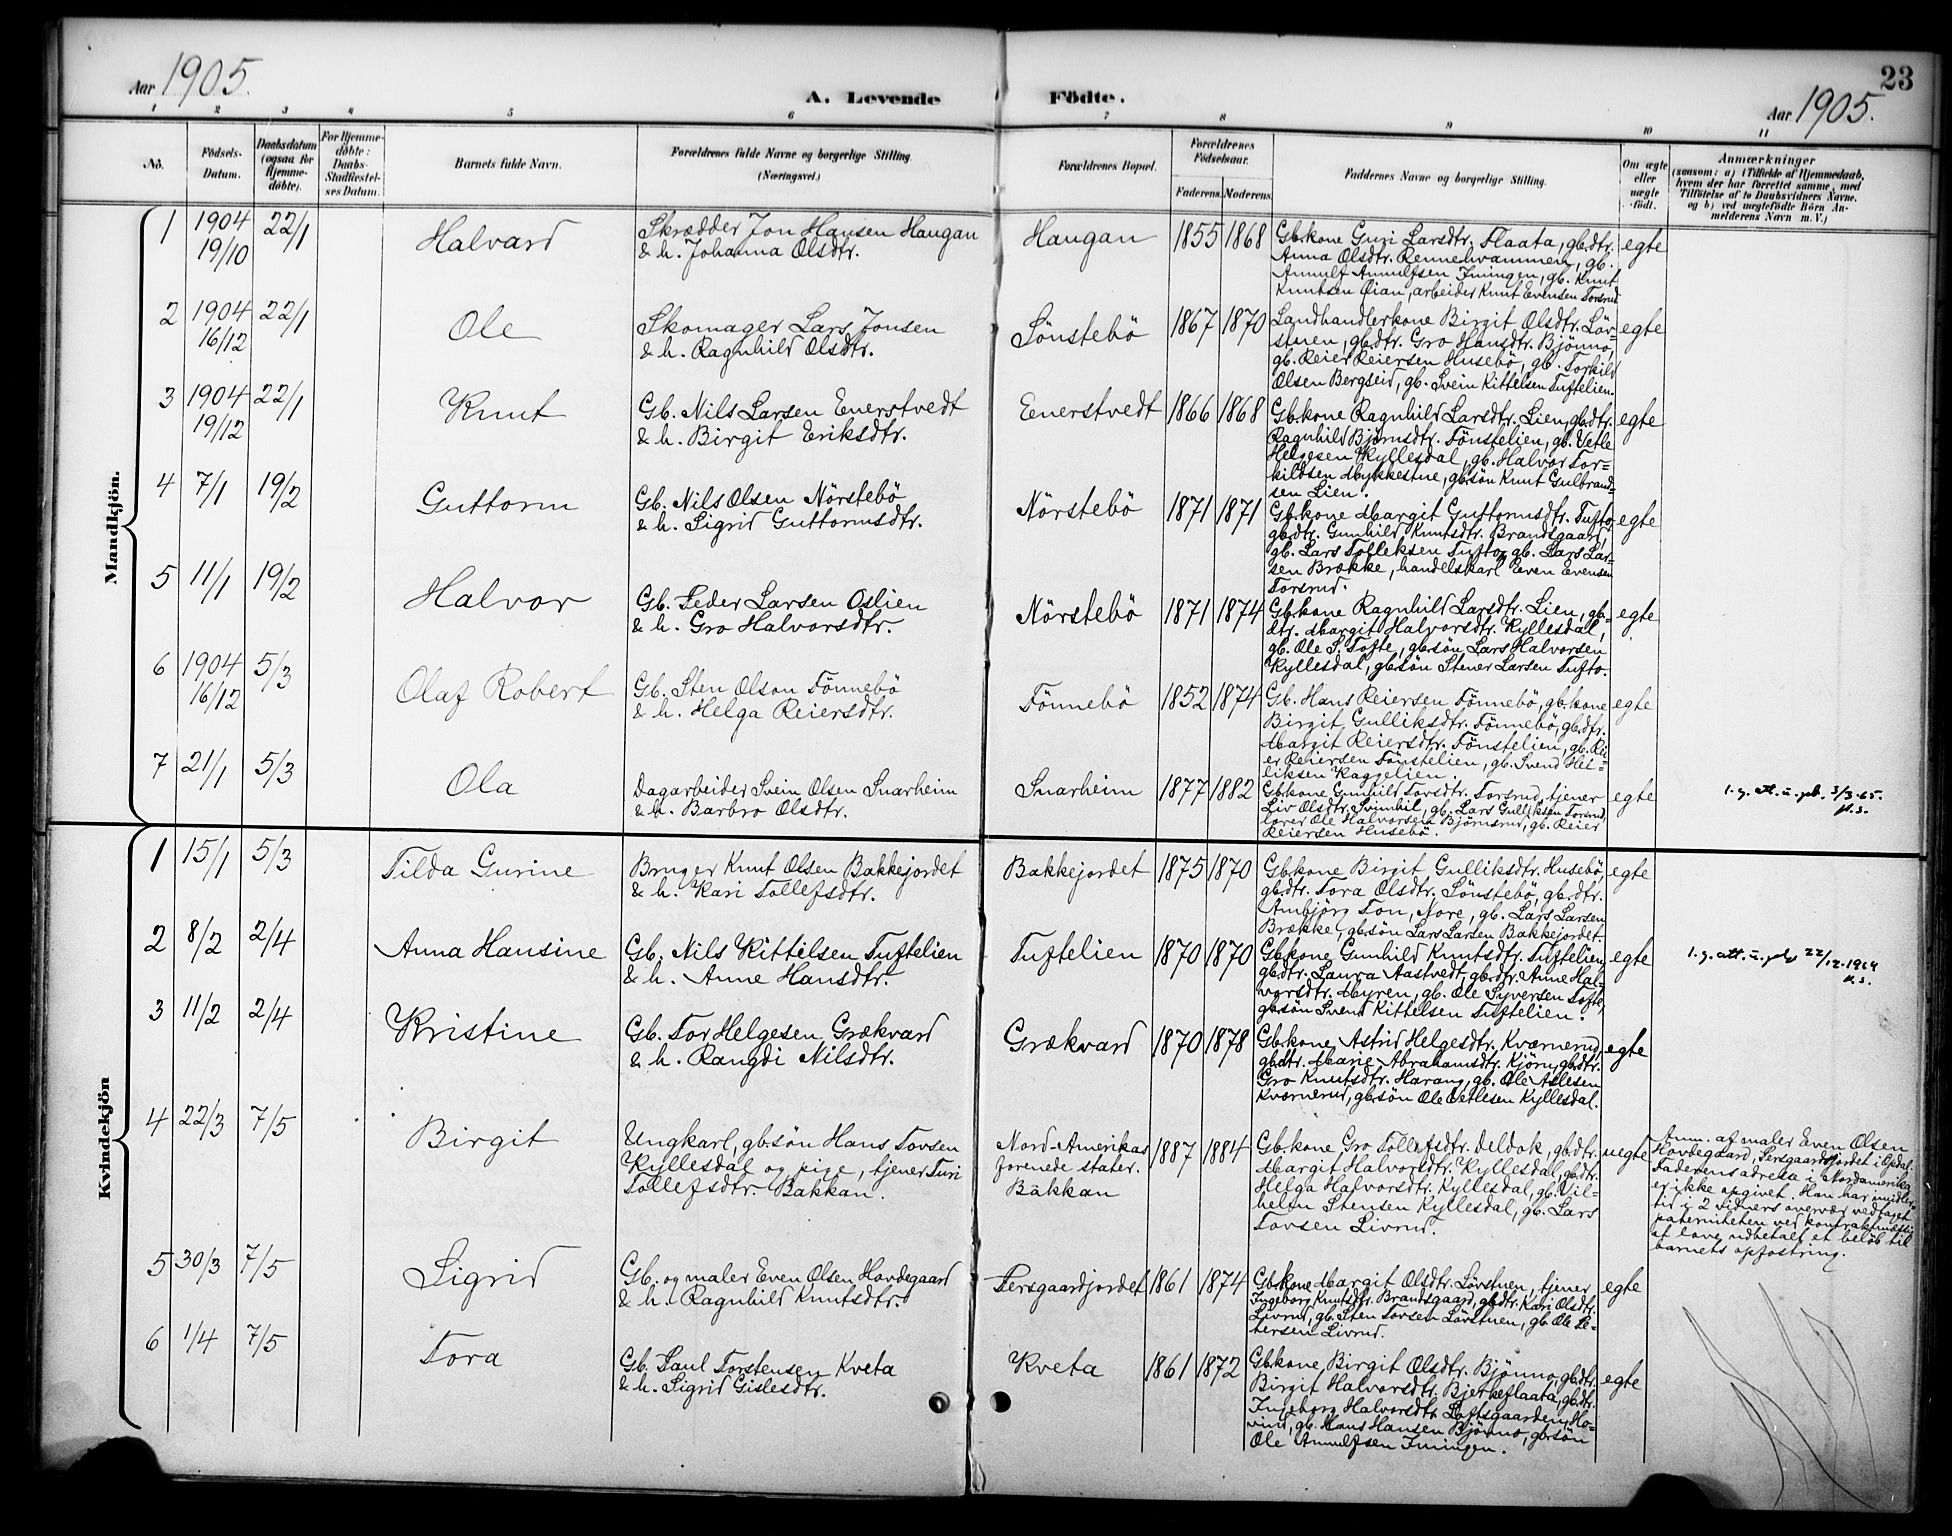 23
Aar 1905.
A. Levende Födte.
Aar 1905.
1 2 3 4 5 6 7 8 9 10 11
No.
Födsels-Datum.
Daabsdatum (ogsaa for Hjemme-döbte).
For Hjemme-döbte: Daabs-Stadfæstel-ses Datum.
Barnets fulde Navn.
Forældrenes fulde Navne og borgerlige Stilling.
(Næringsvei.)
Forældrenes Bopæl.
Forældrenes Födselsaar.
Faderens. Moderens.
Faddernes Navne og borgerlige Stilling.
Om ægte eller uægte födt.
Anmærkninger
(saasom: a) i Tilfælde af Hjemmedaab,
hvem der har forrettet samme, med
Tilföielse af to Daabsvidners Navne.
og b) ved uægtefödte Börn An-
melderens Navn m. V.)
Mandkjön.
1 1904 19/10 22/1 Halvard
Skrædder Jon Hansen Haugan
& h. Johanna Olsdtr.
Haugan 1855 1868
Gb.kone Guri Larsdtr. Flaata, gb.dtr.
Anna Olsdtr. Rennehvammen, gb.
Annulf Annulfsen Imingen, gb. Knut
Knutsen Öian, arbeider Knut Evensen Torsrud
egte
2 1904 16/12 22/1 Ole
Skomager Lars Jonsen
& h. Ragnhild Olsdtr.
Sönstebö 1867 1870
Landhandlerkone Birgit Olsdtr. Lör-
stuen, gb.dtr. Gro Hansdtr. Björnno,
gb. Reier Reiersen Husebö, gb. Torkild
Olsen Bergseid, gb. Svein Kittelsen Tuftelien.
egte
3 1904 19/12 22/1 Knut
Gb. Nils Larsen Enerstvedt
& h. Birgit Eriksdtr.
Enerstvedt 1866 1868
Gb.kone Ragnhild Larsdtr. Lien, gb.dtr.
Ragnhild Björnsdtr. Fönstelien, gb. Vetle
Helgesen Kyllesdal, gb. Halvor Tor-
kildsen Mykkestue, gb.sön Knut Gulbrand-
sen Lien.
egte
4 7/1 19/2 Guttorm
Gb. Nils Olsen Nörstebö
& h. Sigrid Guttormsdtr.
Nörstebö 1871 1871
Gb.kone Margit Guttormsdtr. Tufto,
gb.dtr. Gunhild Knutsdtr. Brandsgaard,
gb. Lars Tolleksen Tufto, gb. Lars Lar-
sen Brække, handelskarl Even Evensen
Torsrud.
egte
5 11/1 19/2 Halvor
Gb. Peder Larsen Oslien
& h. Gro Halvorsdtr.
Nörstebö 1871 1874
Gb.kone Ragnhild Larsdtr. Lien, gb-
dtr. Margit Halvorsdtr. Kyllesdal,
gb. Ole S. Tofte, gb.sön Lars Halvorsen
Kyllesdal, gb.sön Stener Larsen Tufto.
egte
6 1904 16/12 5/3 Olaf Robert
Gb. Sten Olson Fönnebö
& h. Helga Reiersdtr.
Fönnebö 1852 1874
Gb. Hans Reiersen Fönnebö, gb.kone
Birgit Gulliksdtr. Fönnebö, gb.dtr.
Margit Reiersdtr. Fönstelien, gb. Rei-
er Reiersen Fönstelien, gb. Svend Hel-
liksen Kaggelien.
egte
7 21/1 5/3 Ola
Dagarbeider Svein Olsen Snarheim
& h. Barbro Olsdtr.
Snarheim 1877 1882
Gb.kone Gunhild Torsdtr. Torsrud, tjener
Liv Olsdtr. Svinhil, gb. Lars Gulliksen Torsrud,
lærer Ole Halvorsen Björnsrud, gb. Reier
Reiersen Husebö.
egte
1. g. att. u. pb. 3/3.65.
Kvindekjön
1 15/1 5/3 Tilda Gurine
Bruger Knut Olsen Bakkejordet
& h. Kari Tollefsdtr.
Bakkejordet 1875 1870
Gb.kone Birgit Gulliksdtr. Husebö,
gb.dtr. Tora Olsdtr. Sönstebö, gb.dtr.
Ambjörg Ton, Nore, gb. Lars Larsen
Brække, gb.sön Lars Larsen Bakkejordet.
egte
2 8/2 2/4 Anna Hansine
Gb. Nils Kittilsen Tuftelien
& h. Anne Hansdtr.
Tuftelien 1870 1870
Gb.kone Gunhild Knutsdtr. Tuftelien,
gb.dtr. Laura Aastvedt, gb.dtr. Anne Hal-
vorsdtr. Myren, gb. Ole Syversen Tofte,
gb.sön Svend Kittelsen Tuftelien.
egte
1. g. att. u. pb. 22/12.1964
3 11/2 2/4 Kristine
Gb. Tor Helgesen Grækvard
& h. Rangdi Nilsdtr.
Grækvard 1870 1878
Gb.kone Astrid Helgesdtr. Kværnerud,
gb.dtr. Marie Abrahamsdtr. Kjörn, gb.dtr.
Gro Knutsdtr. Harang, gb. Ole Aslesen
Kværnerud, gb.sön Ole Vetlesen Kyllesdal.
egte
4 22/3 7/5 Birgit
Ungkarl, gb.sön Hans Tovsen
Kyllesdal og pige, tjener Turi
Tollefsdtr. Bakkan.
Nord-Amerikas
forenede stater.
Bakkan
1887 1884
Gb.kone Gro Tollefsdtr. Deldok, gb.dtr.
Margit Halvorsdtr. Kyllesdal, gb.dtr.
Helga Halvorsdtr. Kyllesdal, gb. Vil-
helm Stensen Kyllesdal, gb. Lars
Tovsen Livrud.
uegte
Anm. af maler Even Olsen
Hovdegaard, Persgaardjordet i Opdal.
Faderens adresse i Nordamerika
er ikke opgivet. Han har imidler-
tid i 2 vidners overvær vedtaget
paterniteten ved kontraktmæssig
at love udbetalt et belöb til
barnets opfostring.
5 30/3 7/5 Sigrid
Gb. og maler Even Olsen Hovdegaard
& h. Ragnhild Knutsdtr.
Persgaardjordet 1861 1874
Gb.kone Margit Olsdtr. Lövstuen, tjener
Ingeborg Knutsdtr. Brandsgaard, gb.dtr. Kari Olsdtr.
Livrud, gb. Sten Torsen Lövstuen, gb. Ole Pe-
tersen Livrud.
egte
6 1/4 7/5 Tora
Gb. Paul Torstensen Kveta
& h. Sigrid Gislesdtr.
Kveta 1861 1872
Gb.kone Birgit Olsdtr. Björnno, gb.dtr.
Birgit Halvorsdtr. Bjerkeflaata, gb.dtr.
Ingeborg Halvorsdtr. Loftsgaarden, Ho-
vind, gb. Hans Hansen Björnno, gb.sön
Ole Annulfsen Imingen.
egte